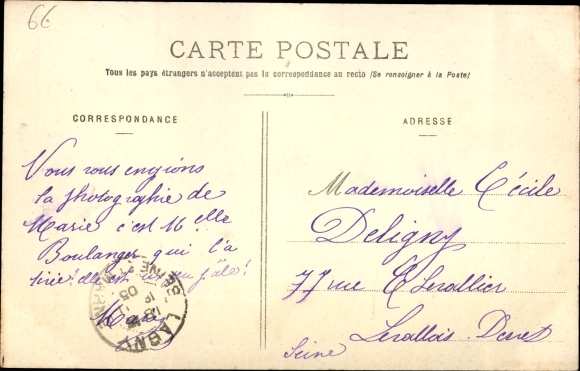 66
CARTE POSTALE
Tous les pays étrangers n'acceptent pas la correspondance au recto (Se renseigner à la Poste)
CORRESPONDANCE
ADRESSE
Vous vous envoyons
la photographie de
Marie c'est Mlle
Boulanger qui l'a
tirée! elle est un peu pâle!
Marie
Mademoiselle Cécile
Deligny
77 rue
Levallois-Perret
Seine
LAGNY